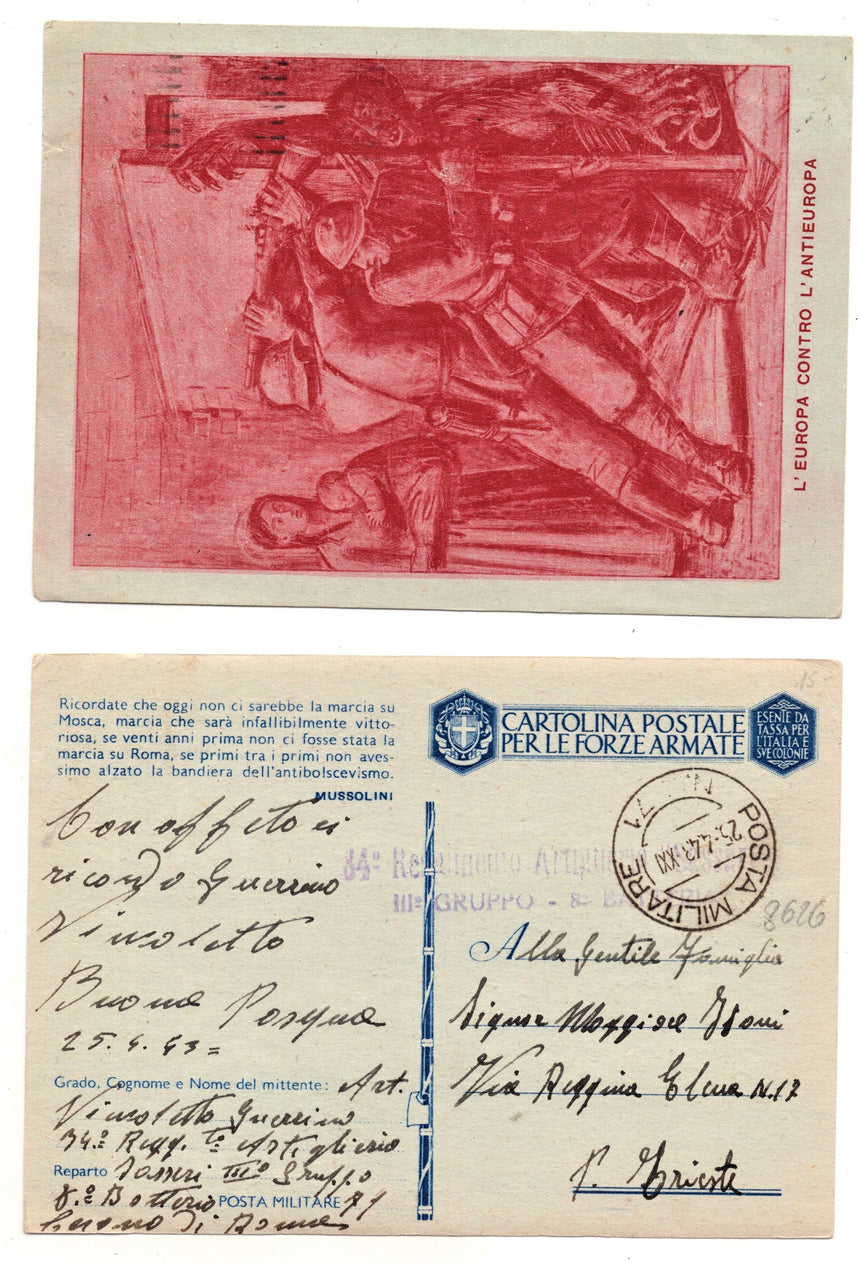 L'EUROPA CONTRO L'ANTIEUROPA
Ricordate che oggi non ci sarebbe la marcia su
Mosca, marcia che sarà infallibilmente vitto-
riosa, se venti anni prima non ci fosse stata la
marcia su Roma, se primi tra i primi non aves-
simo alzato la bandiera dell'antibolscevismo.
MUSSOLINI
CARTOLINA POSTALE
PER LE FORZE ARMATE
ESENTE DA
TASSA PER
L'ITALIA E
SVE COLONIE
15-
POSTA MILITARE N. 71
25.4.43.XXI
34º Reggimento Artiglieria
IIIº GRUPPO - 8ª BATTERIA
8626
Con affetto vi
ricordo Guerrino
Vincoletto
Buona Pasqua
25.4.43=
Alla Gentile Famiglia
Signor
Via Reggina Elena N.17
P. Trieste
Grado, Cognome e Nome del mittente: Art.
Vincoletto Guerrino
34º Regg.to Artiglieria
Reparto Sasseri IIIº Gruppo
8.º Batteria POSTA MILITARE 71